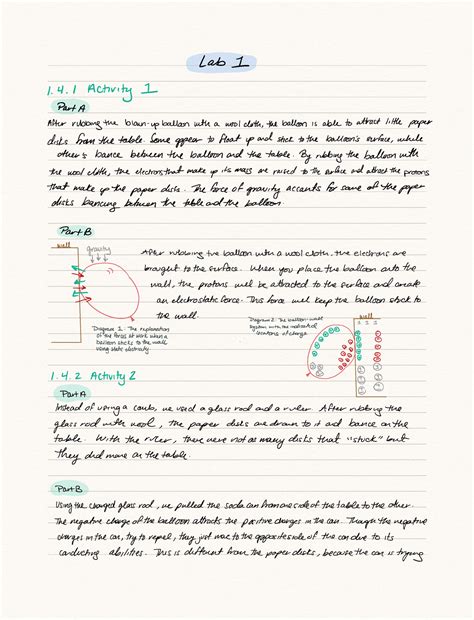 Lab 1
1.4.1 Activity 1
Part A
After rubbing the blown-up balloon with a wool cloth, the balloon is able to attract little paper
disks from the table. Some appear to float up and stick to the balloon's surface, while
other's bance between the balloon and the table. By ribbing the balloon with
the wool cloth, the electrons that make up its mass are raised to the surface and attract the protons
that make up the paper disks. The force of gravity accounts for some of the paper
disks bancing between the table and the balloon.
Part B
wall
gravity
After rubbing the balloon with a wool cloth, the electrons are
brought to the surface. When you place the balloon onto the
wall, the protons will be attracted to the surface and create
an electrostatic force. This force will keep the balloon stuck to
the wall.
Diagram 1: The explanation
of the forces at work when a
balloon sticks to the wall
using static electricity.
Diagram 2: The balloon-wall
system with the
locations of charge.
wall
1 2 3
1.4.2 Activity 2
Part A
Instead of using a comb, we used a glass rod and a ruler. After rubbing the
glass rod with wool, the paper disks are drawn to it and bance on the
table. With the ruler, there were not as many disks that "stuck" but
they did move on the table.
Part B
Using the charged glass rod, we pulled the soda can from one side of the table to the other.
The negative charge of the balloon attracts the positive charges in the can. Though the negative
charges in the can, try to repel, they just move to the opposite side of the can due to its
conducting abilities. This is different from the paper disks, because the can is trying